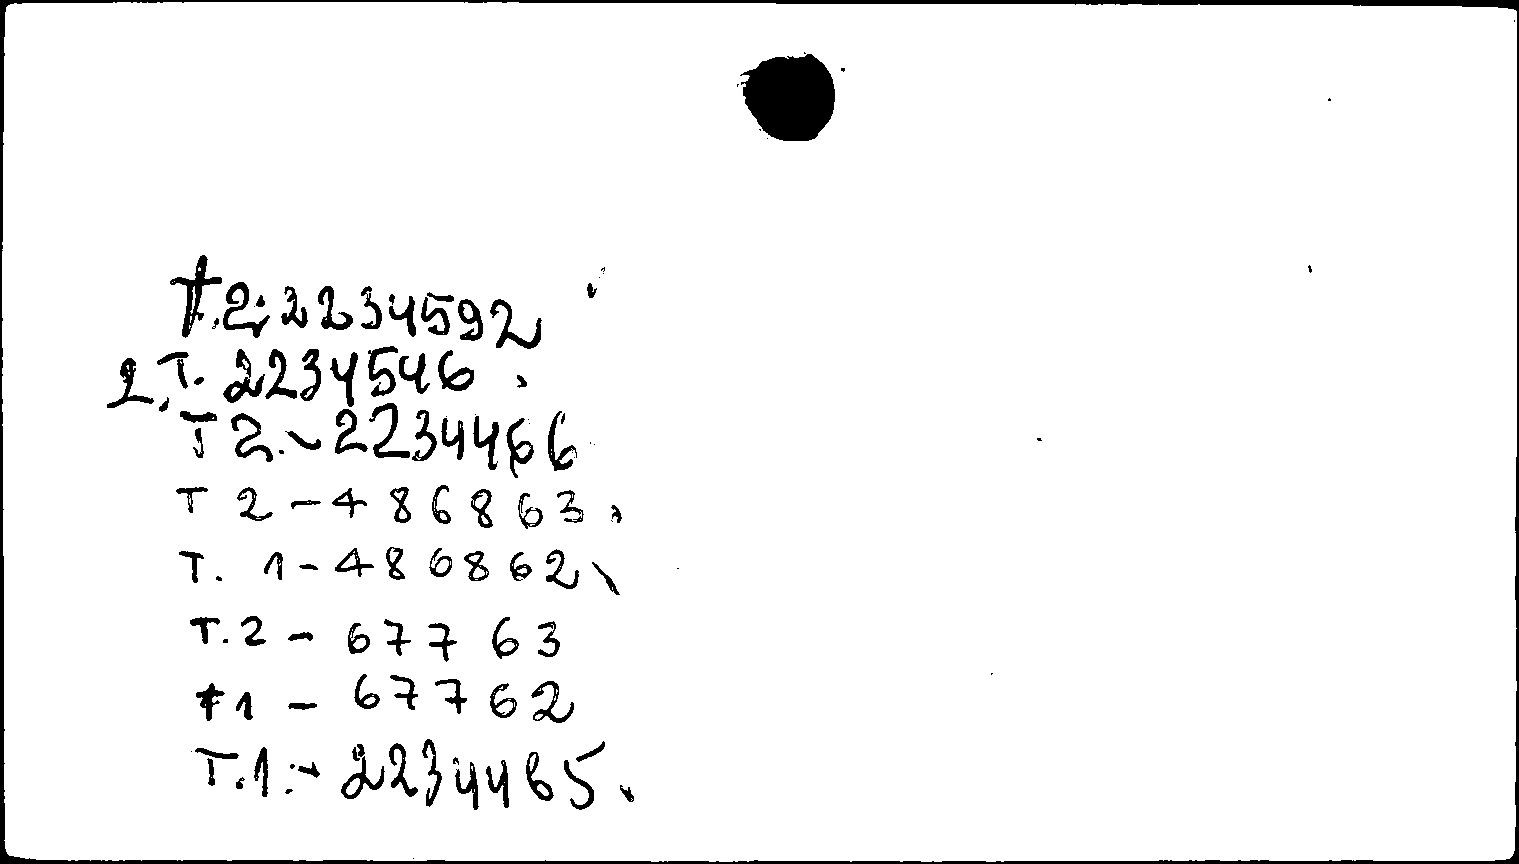 T.2: 2234592
2.T. 2234546.
T 2. - 2234466
T 2 - 486863.
T. 1 - 486862
T.2 - 67763
T1 - 67762
T.1. - 2234465.